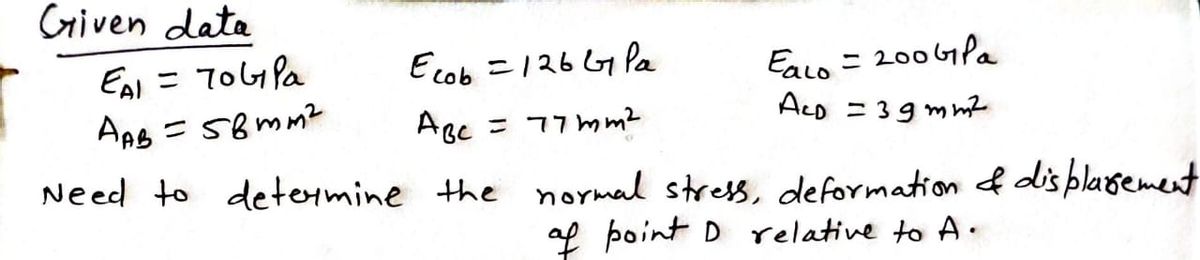 Given data
E_Al = 70 GPa E_cob = 126 GPa E_aco = 200 GPa
A_AB = 58 mm² A_BC = 77 mm² A_CD = 39 mm²
Need to determine the normal stress, deformation & displacement
of point D relative to A.